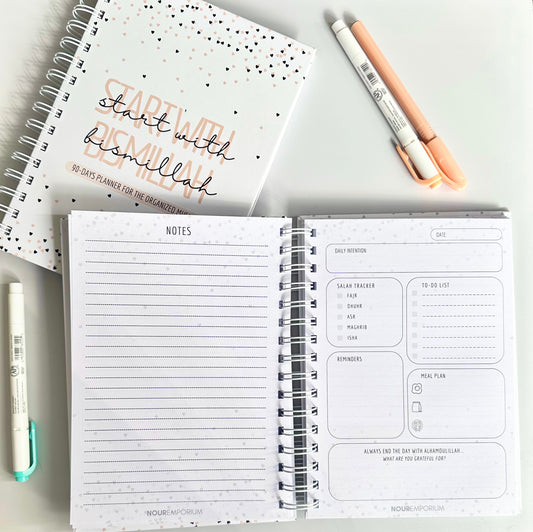 START WITH
BISMILLAH
start with
bismillah
90-DAYS PLANNER FOR THE ORGANIZED
NOTES
NOUREMPORIUM
DATE:
DAILY INTENTION
SALAH TRACKER
FAJR
DHUHR
ASR
MAGHRIB
ISHA
TO-DO LIST
REMINDERS
MEAL PLAN
ALWAYS END THE DAY WITH ALHAMDULILLAH...
WHAT ARE YOU GRATEFUL FOR?
NOUREMPORIUM